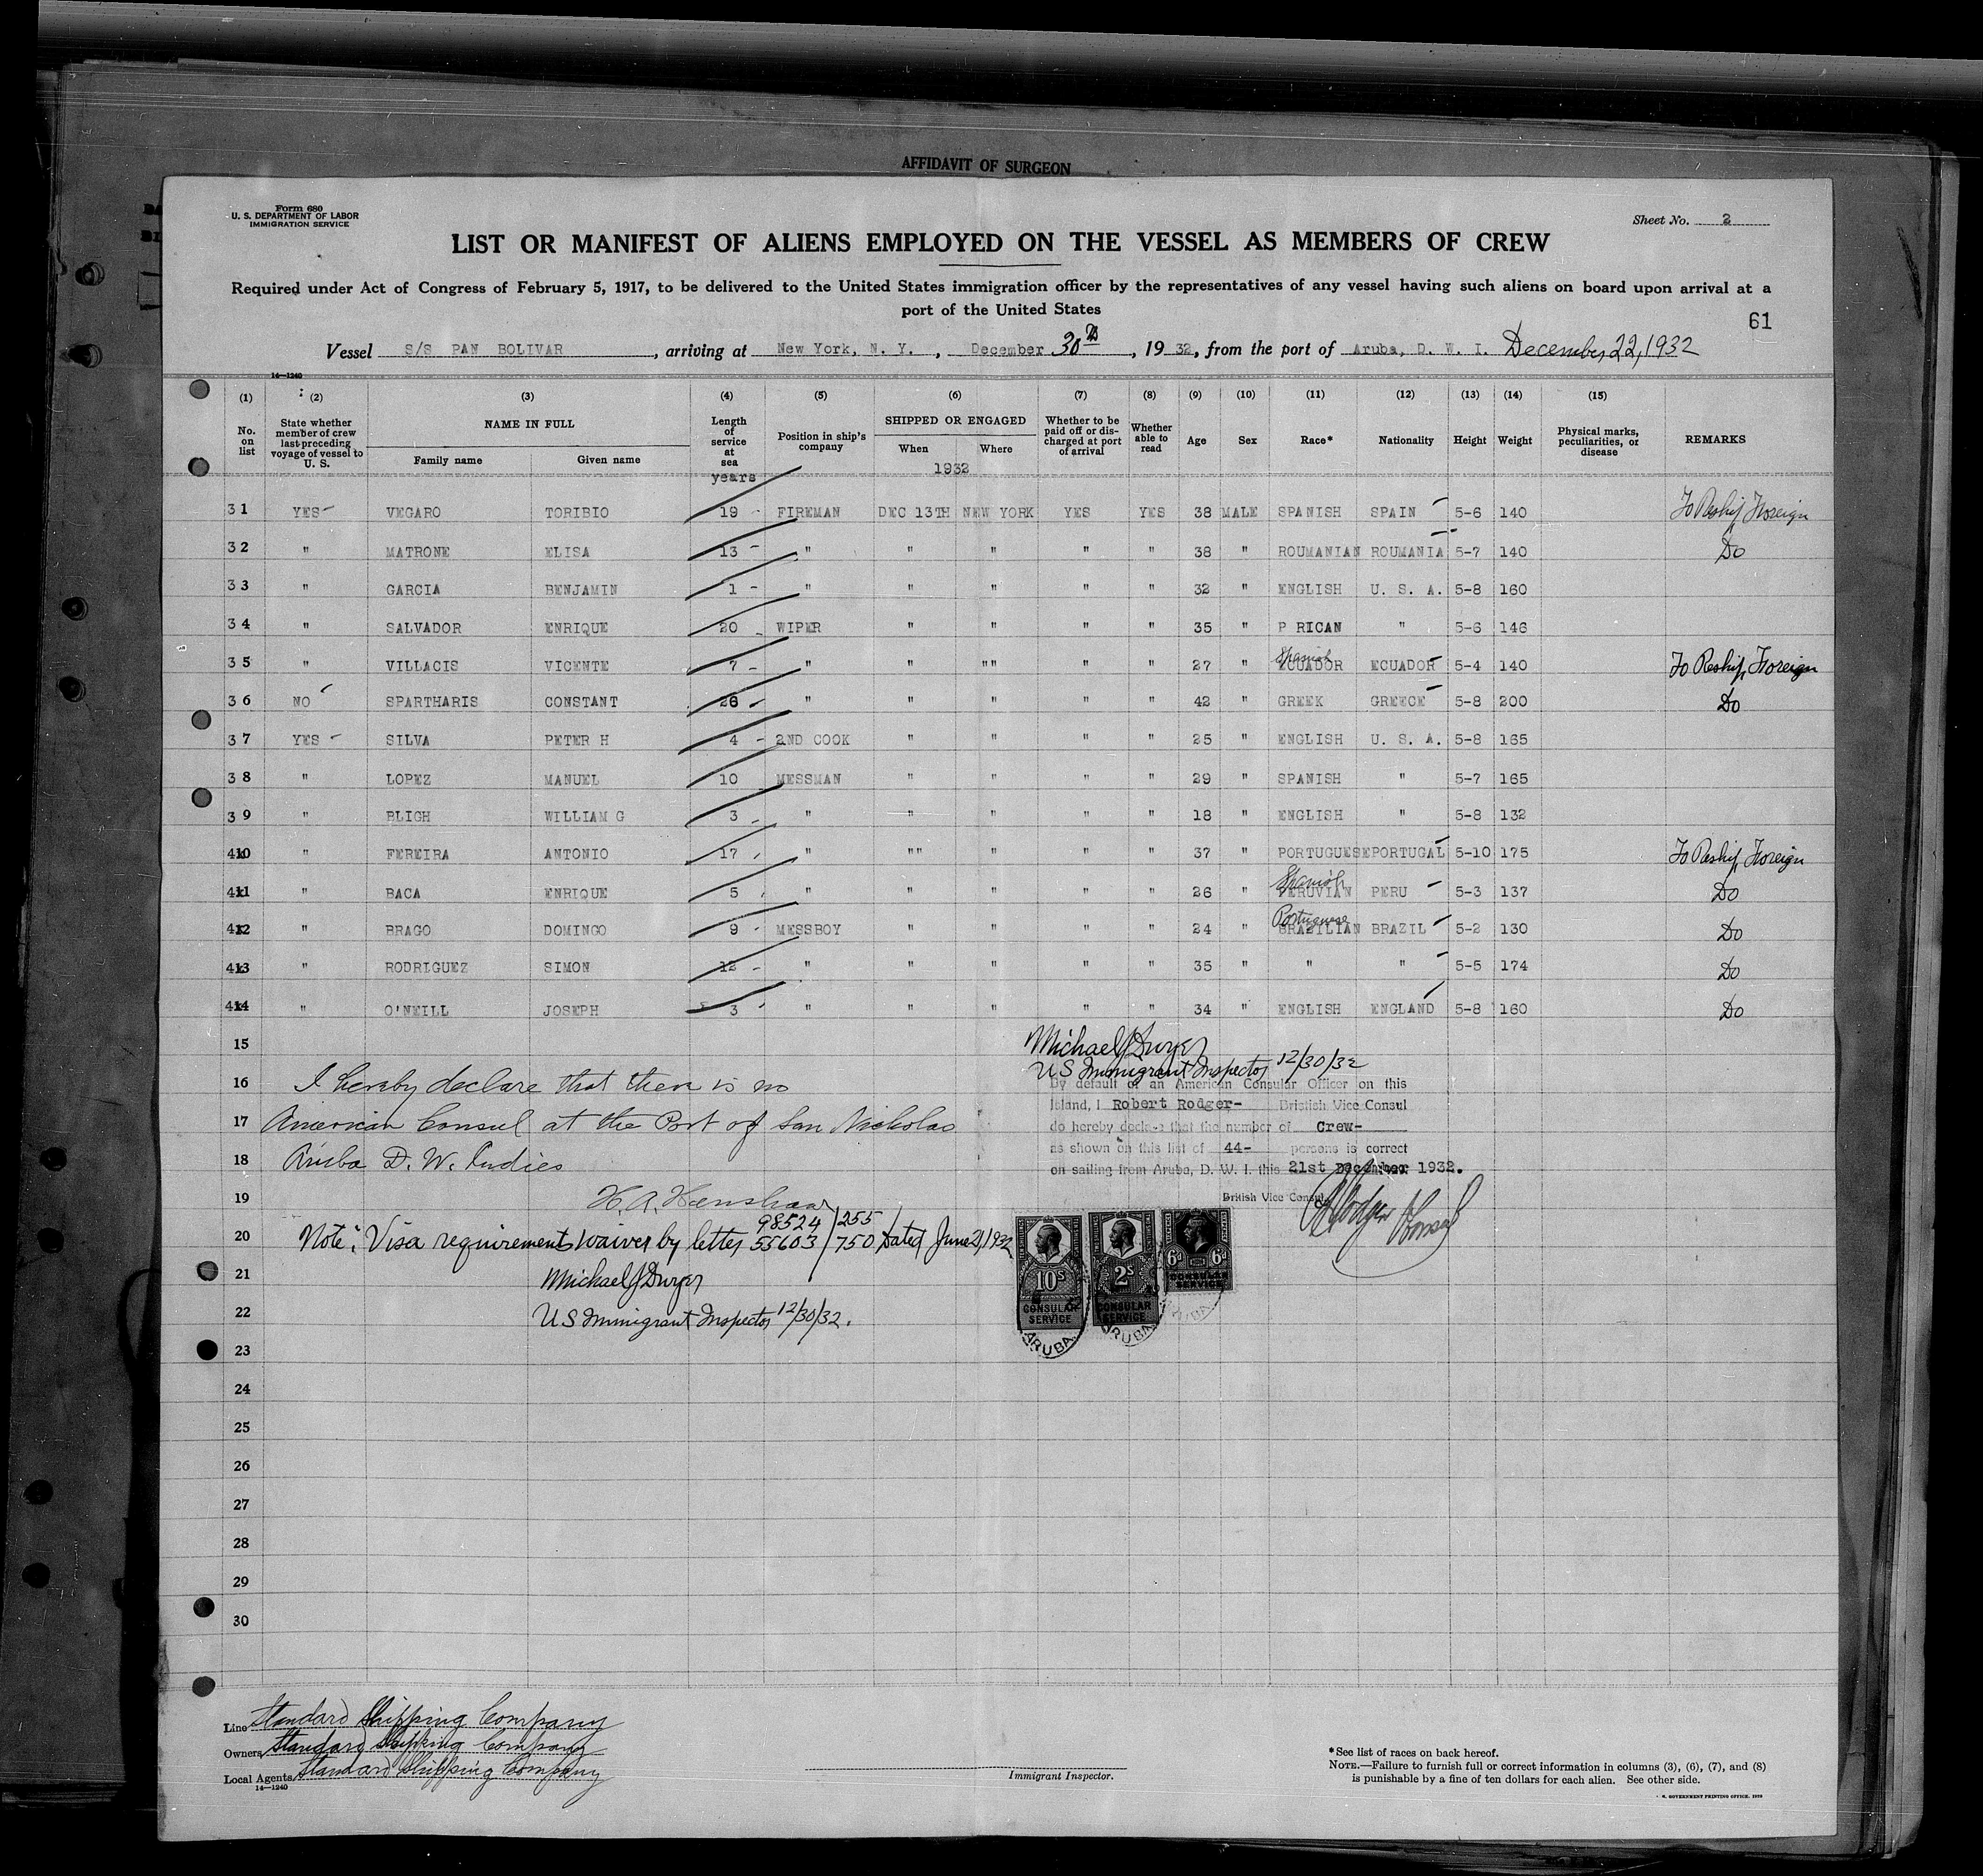 AFFIDAVIT OF SURGEON
Form 680
U. S. DEPARTMENT OF LABOR
IMMIGRATION SERVICE
Sheet No. 2
LIST OR MANIFEST OF ALIENS EMPLOYED ON THE VESSEL AS MEMBERS OF CREW
Required under Act of Congress of February 5, 1917, to be delivered to the United States immigration officer by the representatives of any vessel having such aliens on board upon arrival at a
port of the United States
61
Vessel S/S PAN BOLIVAR, arriving at New York, N. Y., December 30th, 1932, from the port of Aruba, D. W. I. December 22, 1932
14—1240
(1) (2) (3) (4) (5) (6) (7) (8) (9) (10) (11) (12) (13) (14) (15)
No. on list
State whether member of crew last preceding voyage of vessel to U. S.
NAME IN FULL
Family name Given name
Length of service at sea
years
Position in ship's company
SHIPPED OR ENGAGED
When Where
1932
Whether to be paid off or discharged at port of arrival
Whether able to read
Age
Sex
Race*
Nationality
Height
Weight
Physical marks, peculiarities, or disease
REMARKS
31 YES VEGARO TORIBIO 19 - FIREMAN DEC 13TH NEW YORK YES YES 38 MALE SPANISH SPAIN 5-6 140 To Reship Foreign
32 " MATRONE ELISA 13 - " " " " " 38 " ROUMANIAN ROUMANIA 5-7 140 Do
33 " GARCIA BENJAMIN 1 - " " " " " 32 " ENGLISH U. S. A. 5-8 160
34 " SALVADOR ENRIQUE 20 - WIPER " " " " 35 " P RICAN " 5-6 146
35 " VILLACIS VICENTE 7 - " " "" " " 27 " Spanish ECUADOR ECUADOR 5-4 140 To Reship Foreign
36 NO SPARTHARIS CONSTANT 26 - " " " " " 42 " GREEK GREECE 5-8 200 Do
37 YES SILVA PETER H 4 - 2ND COOK " " " " 25 " ENGLISH U. S. A. 5-8 165
38 " LOPEZ MANUEL 10 MESSMAN " " " " 29 " SPANISH " 5-7 165
39 " BLIGH WILLIAM G 3 - " " " " " 18 " ENGLISH " 5-8 132
40 " FEREIRA ANTONIO 17 - " "" " " " 37 " PORTUGUESE PORTUGAL 5-10 175 To Reship Foreign
41 " BACA ENRIQUE 5 - " " " " " 26 " Spanish PERUVIAN PERU 5-3 137 Do
42 " BRAGO DOMINGO 9 - MESSBOY " " " " 24 " Portuguese BRAZILIAN BRAZIL 5-2 130 Do
43 " RODRIGUEZ SIMON 12 - " " " " " 35 " " " 5-5 174 Do
44 " O'NEILL JOSEPH 3 - " " " " " 34 " ENGLISH ENGLAND 5-8 160 Do
15
Michael J Dwyer
US Immigrant Inspector 12/30/32
16
I hereby declare that there is no
17
American Consul at the Port of San Nickolas
18
Aruba D. W. Indies
19
H. A. Henshaw
By default of an American Consular Officer on this
Island, I Robert Rodger- Bristish Vice Consul
do hereby declare that the number of Crew-
as shown on this list of 44- persons is correct
on sailing from Aruba, D. W. I. this 21st December 1932.
British Vice Consul
20
Note: Visa requirements waiver by letter 98524/255 55603/750 Dated June 21, 1932
21
Michael J Dwyer
22
US Immigrant Inspector 12/30/32.
10s CONSULAR SERVICE
2s CONSULAR SERVICE
6d 6d CONSULAR SERVICE
ARUBA
ARUBA
23
24
25
26
27
28
29
30
Line Standard Shipping Company
Owners Standard Shipping Company
Local Agents Standard Shipping Company
14—1240
Immigrant Inspector.
*See list of races on back hereof.
NOTE.—Failure to furnish full or correct information in columns (3), (6), (7), and (8)
is punishable by a fine of ten dollars for each alien. See other side.